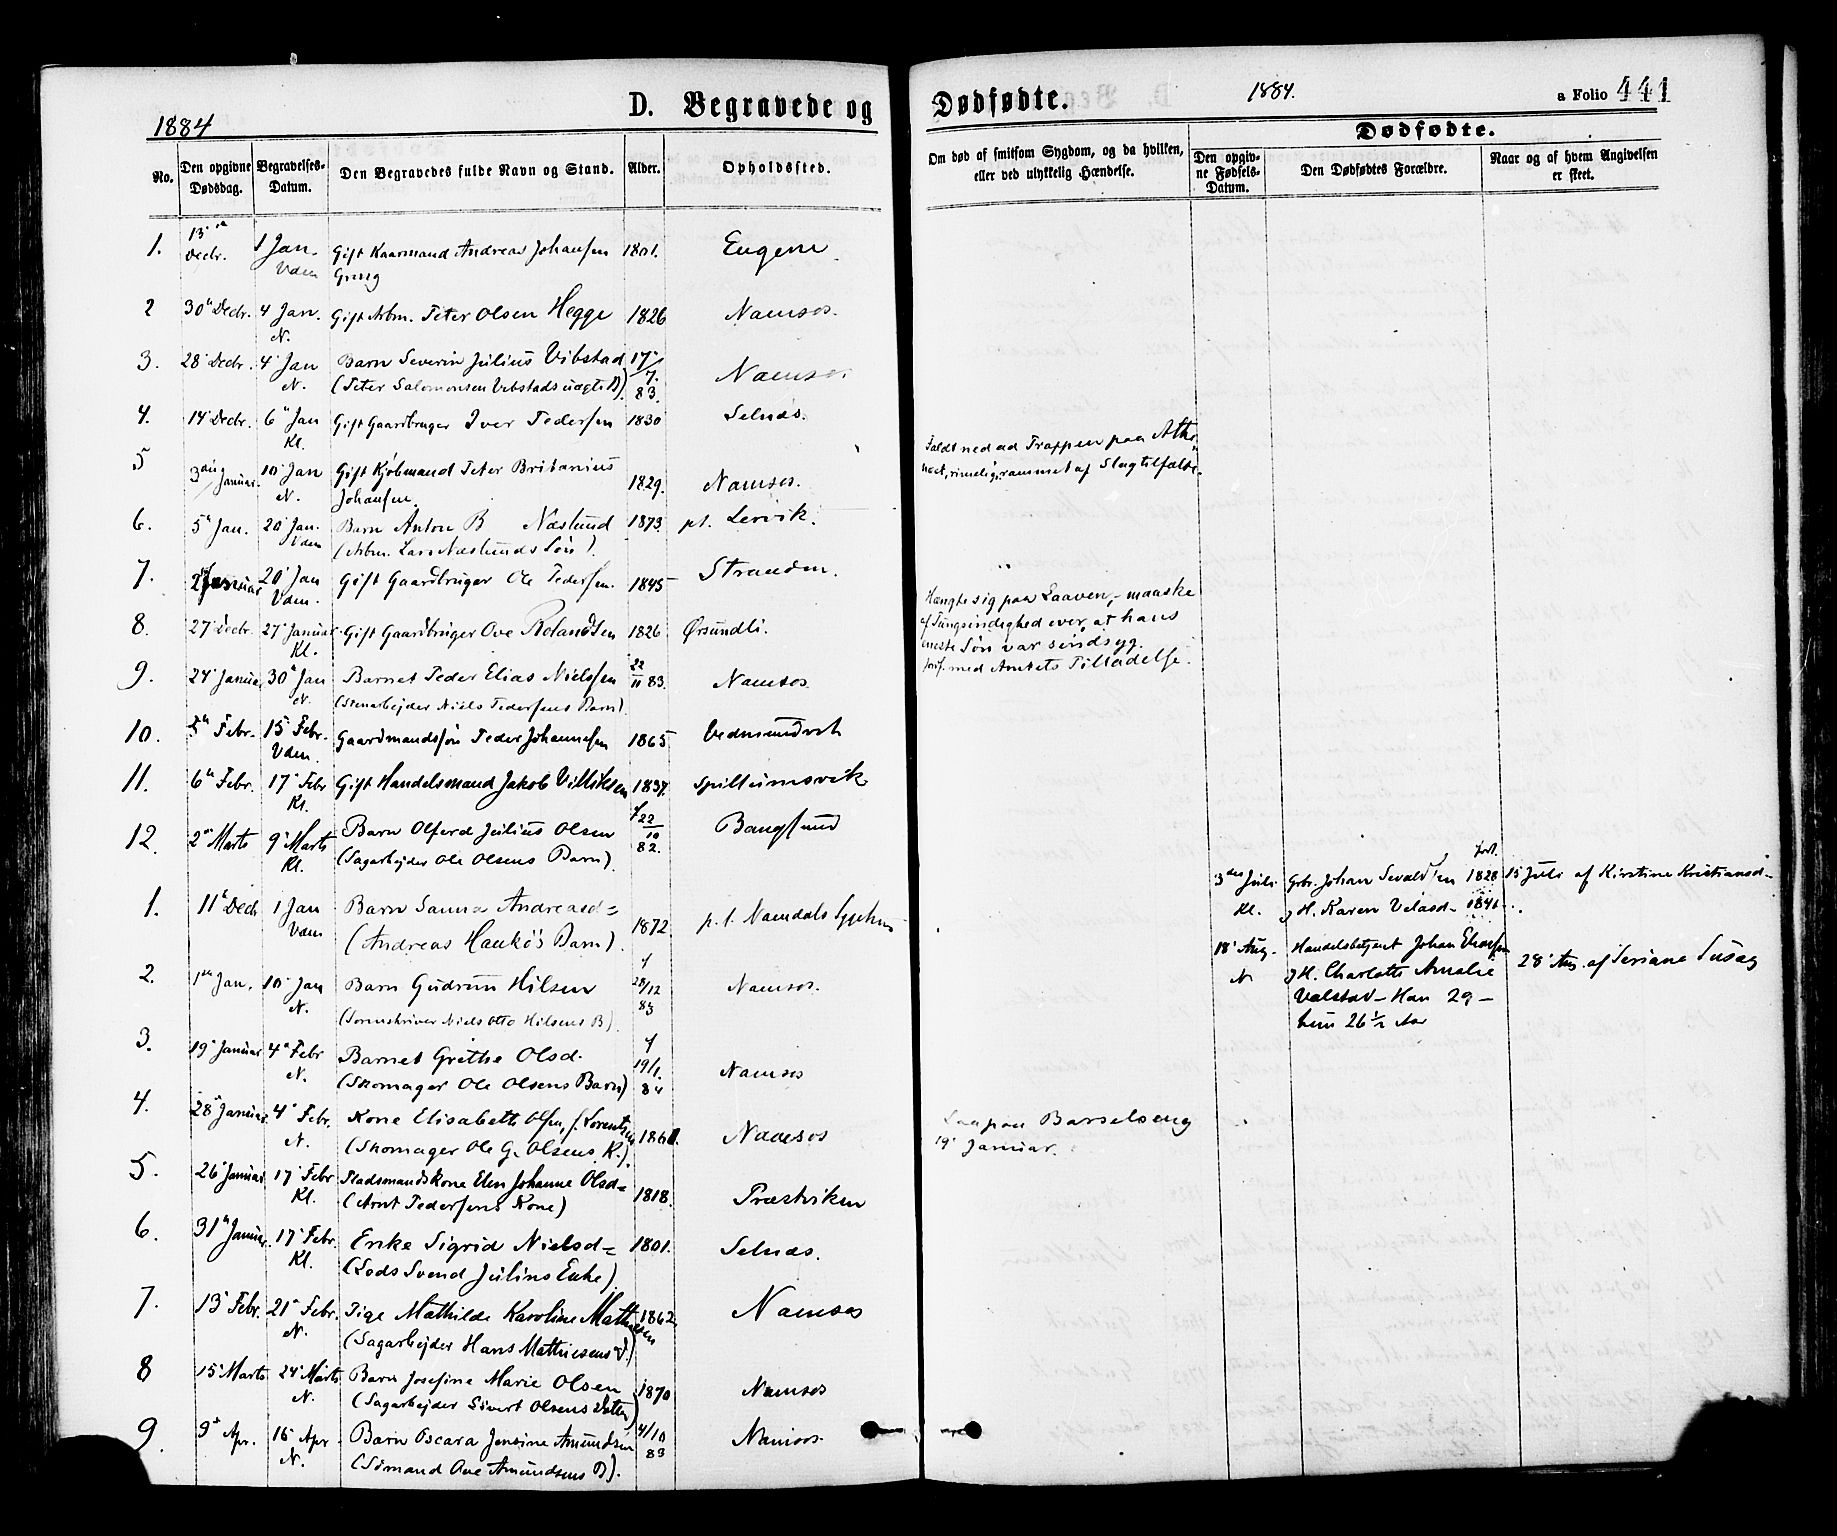 1884
D. Begravede og
Dødfødte.
1884.
a Folio 441
No.
Den opgivne Dødsdag.
Begravelses-Datum.
Den Begravedes fulde Navn og Stand.
Alder.
Opholdssted.
Om død af smitsom Sygdom, og da hvilken, eller ved ulykkelig Hændelse.
Dødfødte.
Den opgivne Fødsels-Datum.
Den Dødfødtes Forældre.
Naar og af hvem Angivelsen er skeet.
1. 13 Decbr. 1 Jan. Gift Kaarmand Andreas Johansen 1801.
Vdem
2 30 Decbr. 4 Jan. Gift Arbm. Peter Olsen Hegge 1826 Namsos.
N.
3. 28 Decbr. 4 Jan Barn Severin Julius Vibstad 17/7. 83. Namsos
N. (Peter Salomonsen Vibstads uægte B)
4. 14 Decbr. 6 Jan Gift Gaardbruger Iver Pedersen 1830 Selnæs.
Kl.
5 3 Januar. 10 Jan Gift Kjøbmand Peter Britanius 1829. Namsos.
N. Johansen.
Faldt ned ad Trappen paa
rammet af Slagtilfælde.
6. 5 Jan. 20 Jan. Barn Anton B Næslund 1873. pt. Lervik.
Vdem (Arbm. Lars Næslunds Søn).
7. 2 Januar 20 Jan Gift Gaardbruger Ole Pedersen. 1845 Stranden.
Vdem.
Hængte sig paa Laaven, - maaske
af Tungsindighed over, at hans
eneste Søn var sindsyg.
med Amtets Tilladelse.
8. 27 Decbr. 27 Januar Gift Gaardbruger Ove Rolandsen 1826 Ørsundli.
Kl.
9. 24 Januar 30 Jan Barnet Peder Elias Nielssen 22/11 83. Namsos
N. (Stenarbejder Niels Pedersens Barn).
10. 5 Febr. 15 Febr. Gaardmandssøn Peder Johannesen 1865
Vdem.
11. 6 Febr. 17 Febr Gift Handelsmand Jakob Villiksen 1837. Spillumsvik
Kl.
12. 2 Marts 9 Marts Barn Olferd Julius Olsen f 22/10 82. Bangsund
Kl. (Sagarbejder Ole Olsens Barn).
3 Juli Gbr. Johan Sevalds en 1828 15 Juli af Kirstine Kristiansd-
Kl. H. Karen Velasd- 1841
1. 11 Decb 1 Jan Barn Sanna Andreasd= 1872 p. t. Namdals Sygehus
Vdem (Andreas Haukøs Barn).
18 Aug. Handelsbetjent Johan
N H. Charlotte Amalie 28 Aug. af Seriane Susag
Valstad - Han 29 -
hun 26 1/2 Aar
2. 1 Jan. 10 Jan Barn Gudrun Hilsen f 28/12 83 Namsos.
N. (Sorenskriver Niels Otto Hilsens B).
3. 19 Januar 4 Febr Barnet Grethe Olsd. f 19/1. 84 Namsos
N. (Skomager Ole Olsens Barn)
4. 28 Januar. 4 Febr. Kone Elisabeth Olsen, f. Lorentsen Namsos
N. (Skomager Ole G. Olsens K.).
Laa paa Barselseng
19 Januar.
5. 26 Januar 17 Febr Pladsmandskone Elen Johanne Olsd= 1818. Præstviken
Kl. (Arnt Pedersens Kone)
6. 31 Januar. 17 Febr. Enke Sigrid Nielsd= 1801. Selnæs.
Kl. (Lods Svend Julius Enke)
7. 13 Febr. 21 Febr. Pige Mathilde Karoline Mathiesen 1862 Namsos
N. (Sagarbejder Hans Mathiesens D.)
8 15 Marts 24 Marts Barn Josefine Marie Olsen 1870 Namsos
N. (Sagarbejder Sivert Olsens Datter)
9. 9 Apr. 16 Apr Barn Oscara Jensine Amundsen 4/10 83 Namsos.
N. (Sømand Ove Amundsens B).